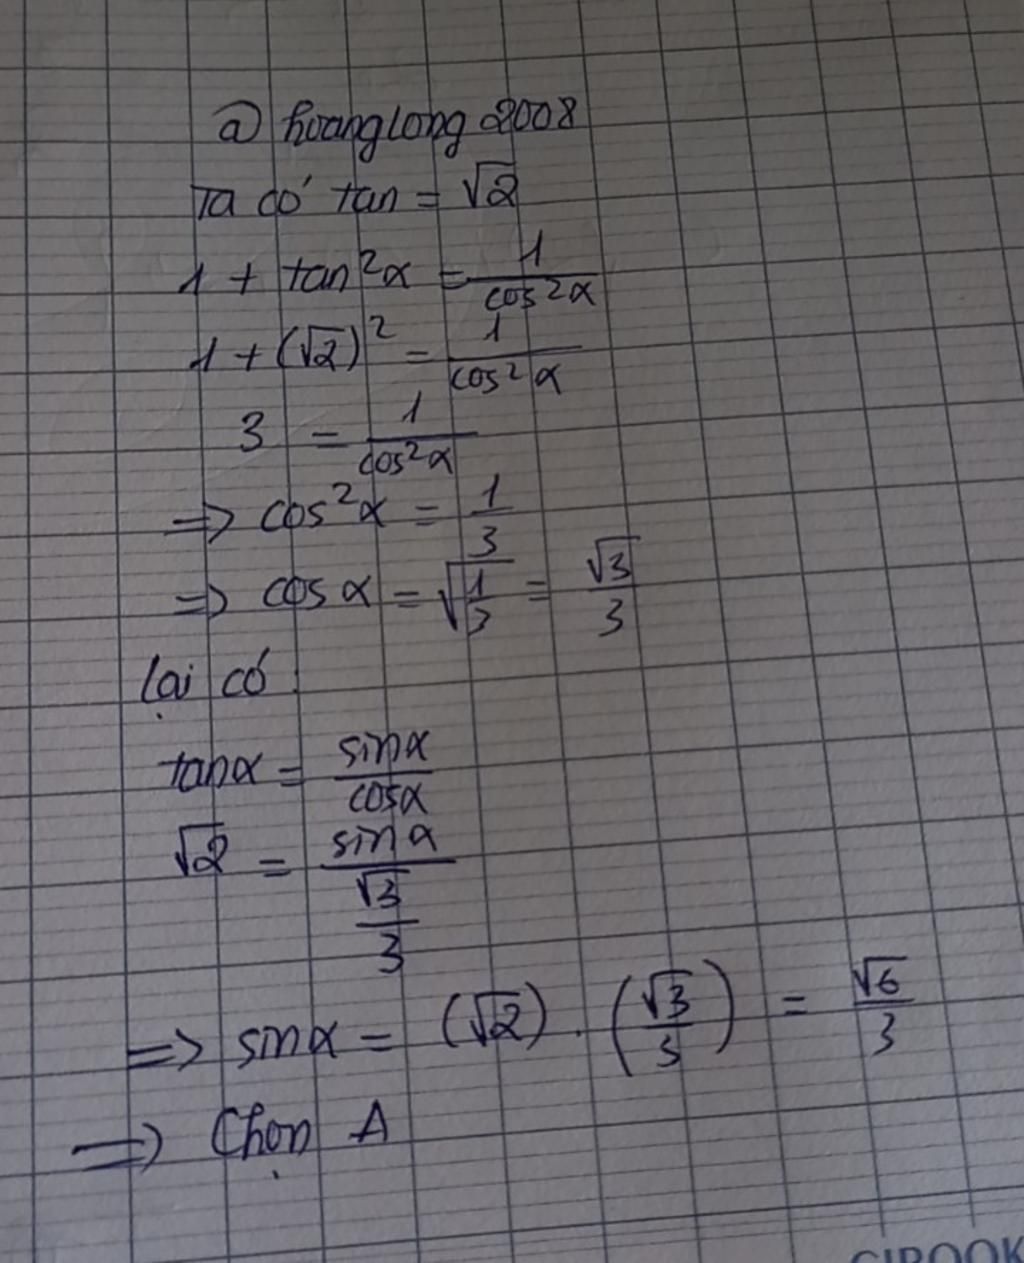 @ hoanglong2008
Ta có tan = √2
1 + tan²α = 1/cos²α
1 + (√2)² = 1/cos²α
3 = 1/cos²α
=> cos²α = 1/3
=> cos α = √(1/3) = √3/3
lại có :
tanα = sinα/cosα
√2 = sinα/(√3/3)
=> sinα = (√2) . (√3/3) = √6/3
=> Chọn A